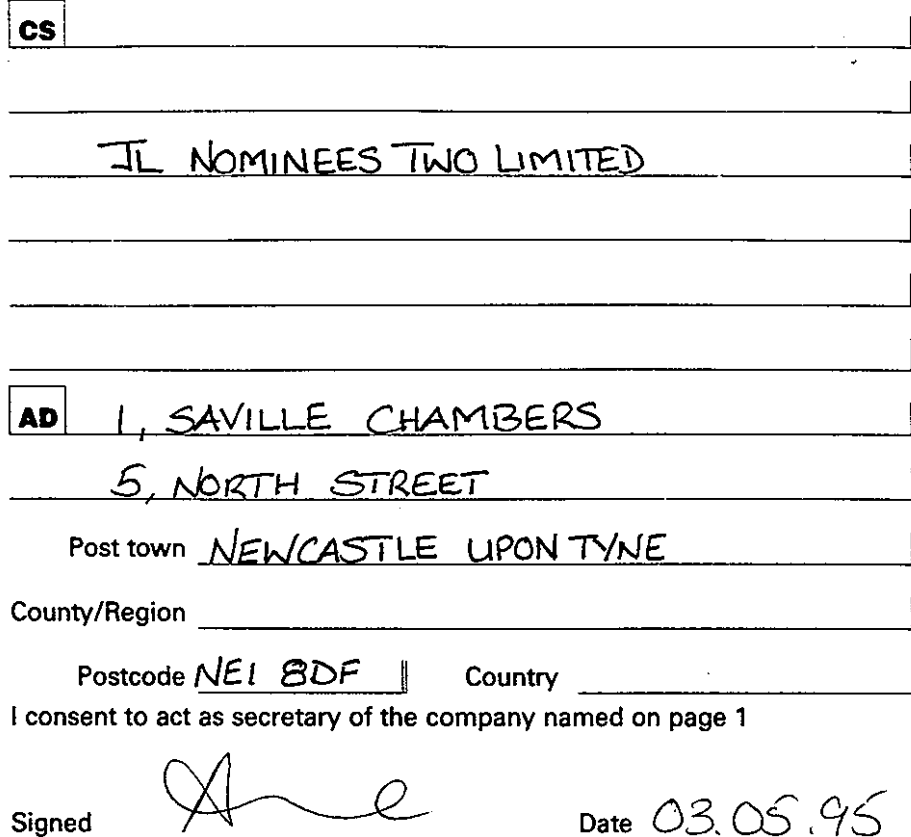 CS
JL NOMINEES TWO LIMITED
AD 1, SAVILLE CHAMBERS
5, NORTH STREET
Post town NEWCASTLE UPON TYNE
County/Region
Postcode NE1 8DF Country
I consent to act as secretary of the company named on page 1
Signed Date 03.05.95